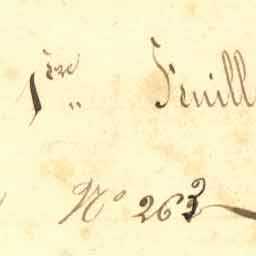 1ère Feuill
N° 262